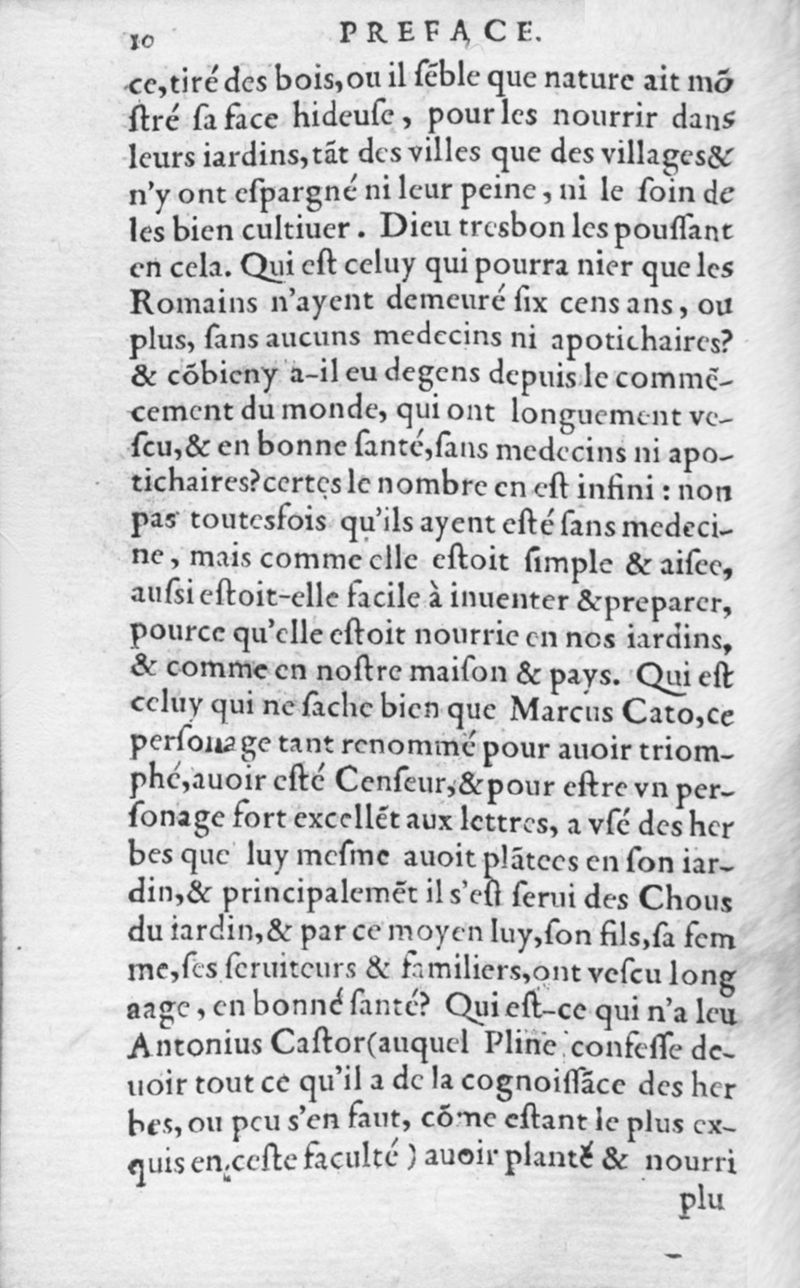 10 PREFACE.
ce,tiré des bois,ou il ſẽble que nature ait mõ
ſtré ſa face hideuſe, pour les nourrir dans
leurs iardins,tãt des villes que des villages&
n'y ont eſpargné ni leur peine, ni le ſoin de
les bien cultiuer. Dieu tresbon les pouſſant
en cela. Qui eſt celuy qui pourra nier que les
Romains n'ayent demeuré ſix cens ans, ou
plus, ſans aucuns medecins ni apotichaires?
& cõbieny a-il eu degens depuis le commẽ-
cement du monde, qui ont longuement ve-
ſcu,& en bonne ſanté,ſans medecins ni apo-
tichaires?certes le nombre en eſt infini : non
pas toutesfois qu'ils ayent eſté ſans medeci-
ne, mais comme elle eſtoit ſimple & aiſee,
auſsi eſtoit-elle facile à inuenter &preparer,
pource qu'elle eſtoit nourrie en nos iardins,
& comme en noſtre maiſon & pays. Qui eſt
celuy qui ne ſache bien que Marcus Cato,ce
perſonage tant renommé pour auoir triom-
phé,auoir eſté Cenſeur,&pour eſtre vn per-
ſonage fort excellẽt aux lettres, a vſé des her
bes que luy meſme auoit plãtees en ſon iar-
din,& principalemẽt il s'eſt ſerui des Chous
du iardin,& par ce moyen luy,ſon fils,ſa fem
me,ſes ſeruiteurs & familiers,ont veſcu long
aage, en bonné ſanté? Qui eſt-ce qui n'a leu
Antonius Caſtor(auquel Pline confeſſe de-
uoir tout ce qu'il a de la cognoiſſãce des her
bes, ou peu s'en faut, cõme eſtant le plus ex-
quis en ceſte faculté) auoir planté & nourri
plu